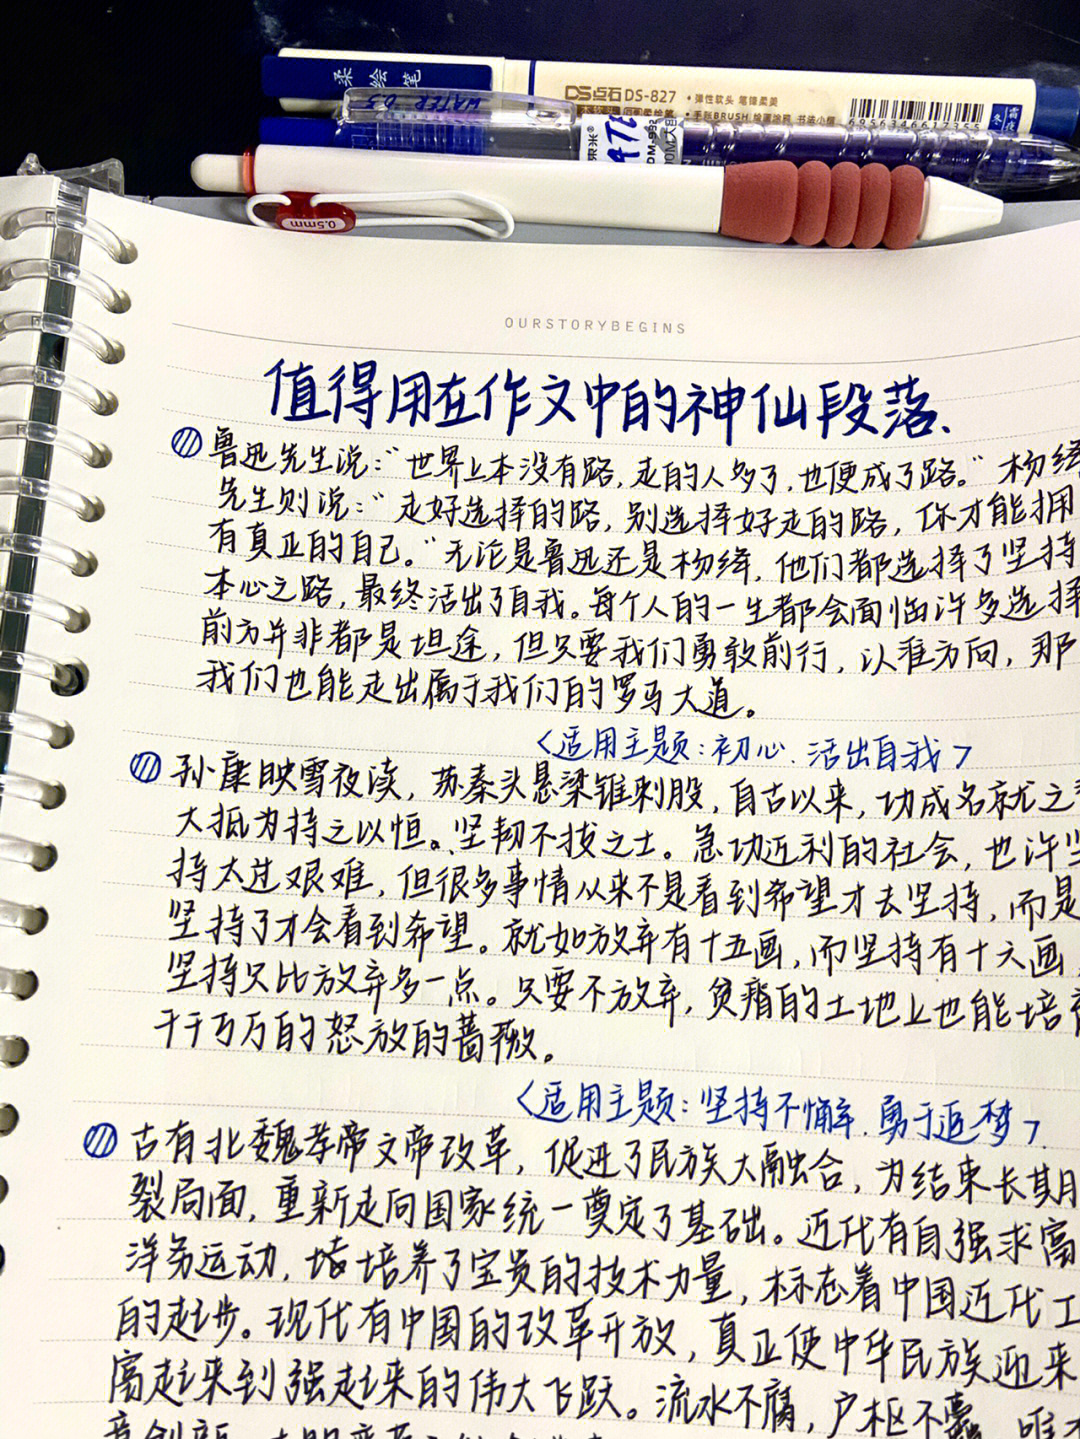 柔绘笔
DS点石 DS-827
弹性软头 笔锋柔美
手账BRUSH 绘画涂鸦 书法小楷
6956346617355
WATER 0.5
0.5mm
OURSTORYBEGINS
值得用在作文中的神仙段落.
鲁迅先生说:“世界上本没有路,走的人多了,也便成了路。”杨绛
先生则说:“走好选择的路,别选择好走的路,你才能拥
有真正的自己。”无论是鲁迅还是杨绛,他们都选择了坚持
本心之路,最终活出了自我。每个人的一生都会面临许多选择
前方并非都是坦途,但只要我们勇敢前行,认准方向,那
我们也能走出属于我们的罗马大道。
<适用主题:初心.活出自我>
孙康映雪夜读,苏秦头悬梁锥刺股,自古以来,功成名就之
大抵为持之以恒。坚韧不拔之士。急功近利的社会,也许坚
持太过艰难,但很多事情从来不是看到希望才去坚持,而是
坚持了才会看到希望。就如放弃有十五画,而坚持有十六画,
坚持只比放弃多一点。只要不放弃,贫瘠的土地上也能培育
千千万万的怒放的蔷薇。
<适用主题:坚持不懈.勇于追梦>.
古有北魏孝帝文帝改革,促进了民族大融合,为结束长期
裂局面,重新走向国家统一奠定了基础。近代有自强求富
洋务运动,培养了宝贵的技术力量,标志着中国近代工
的起步。现代有中国的改革开放,真正使中华民族迎来
富起来到强起来的伟大飞跃。流水不腐,户枢不蠹,唯